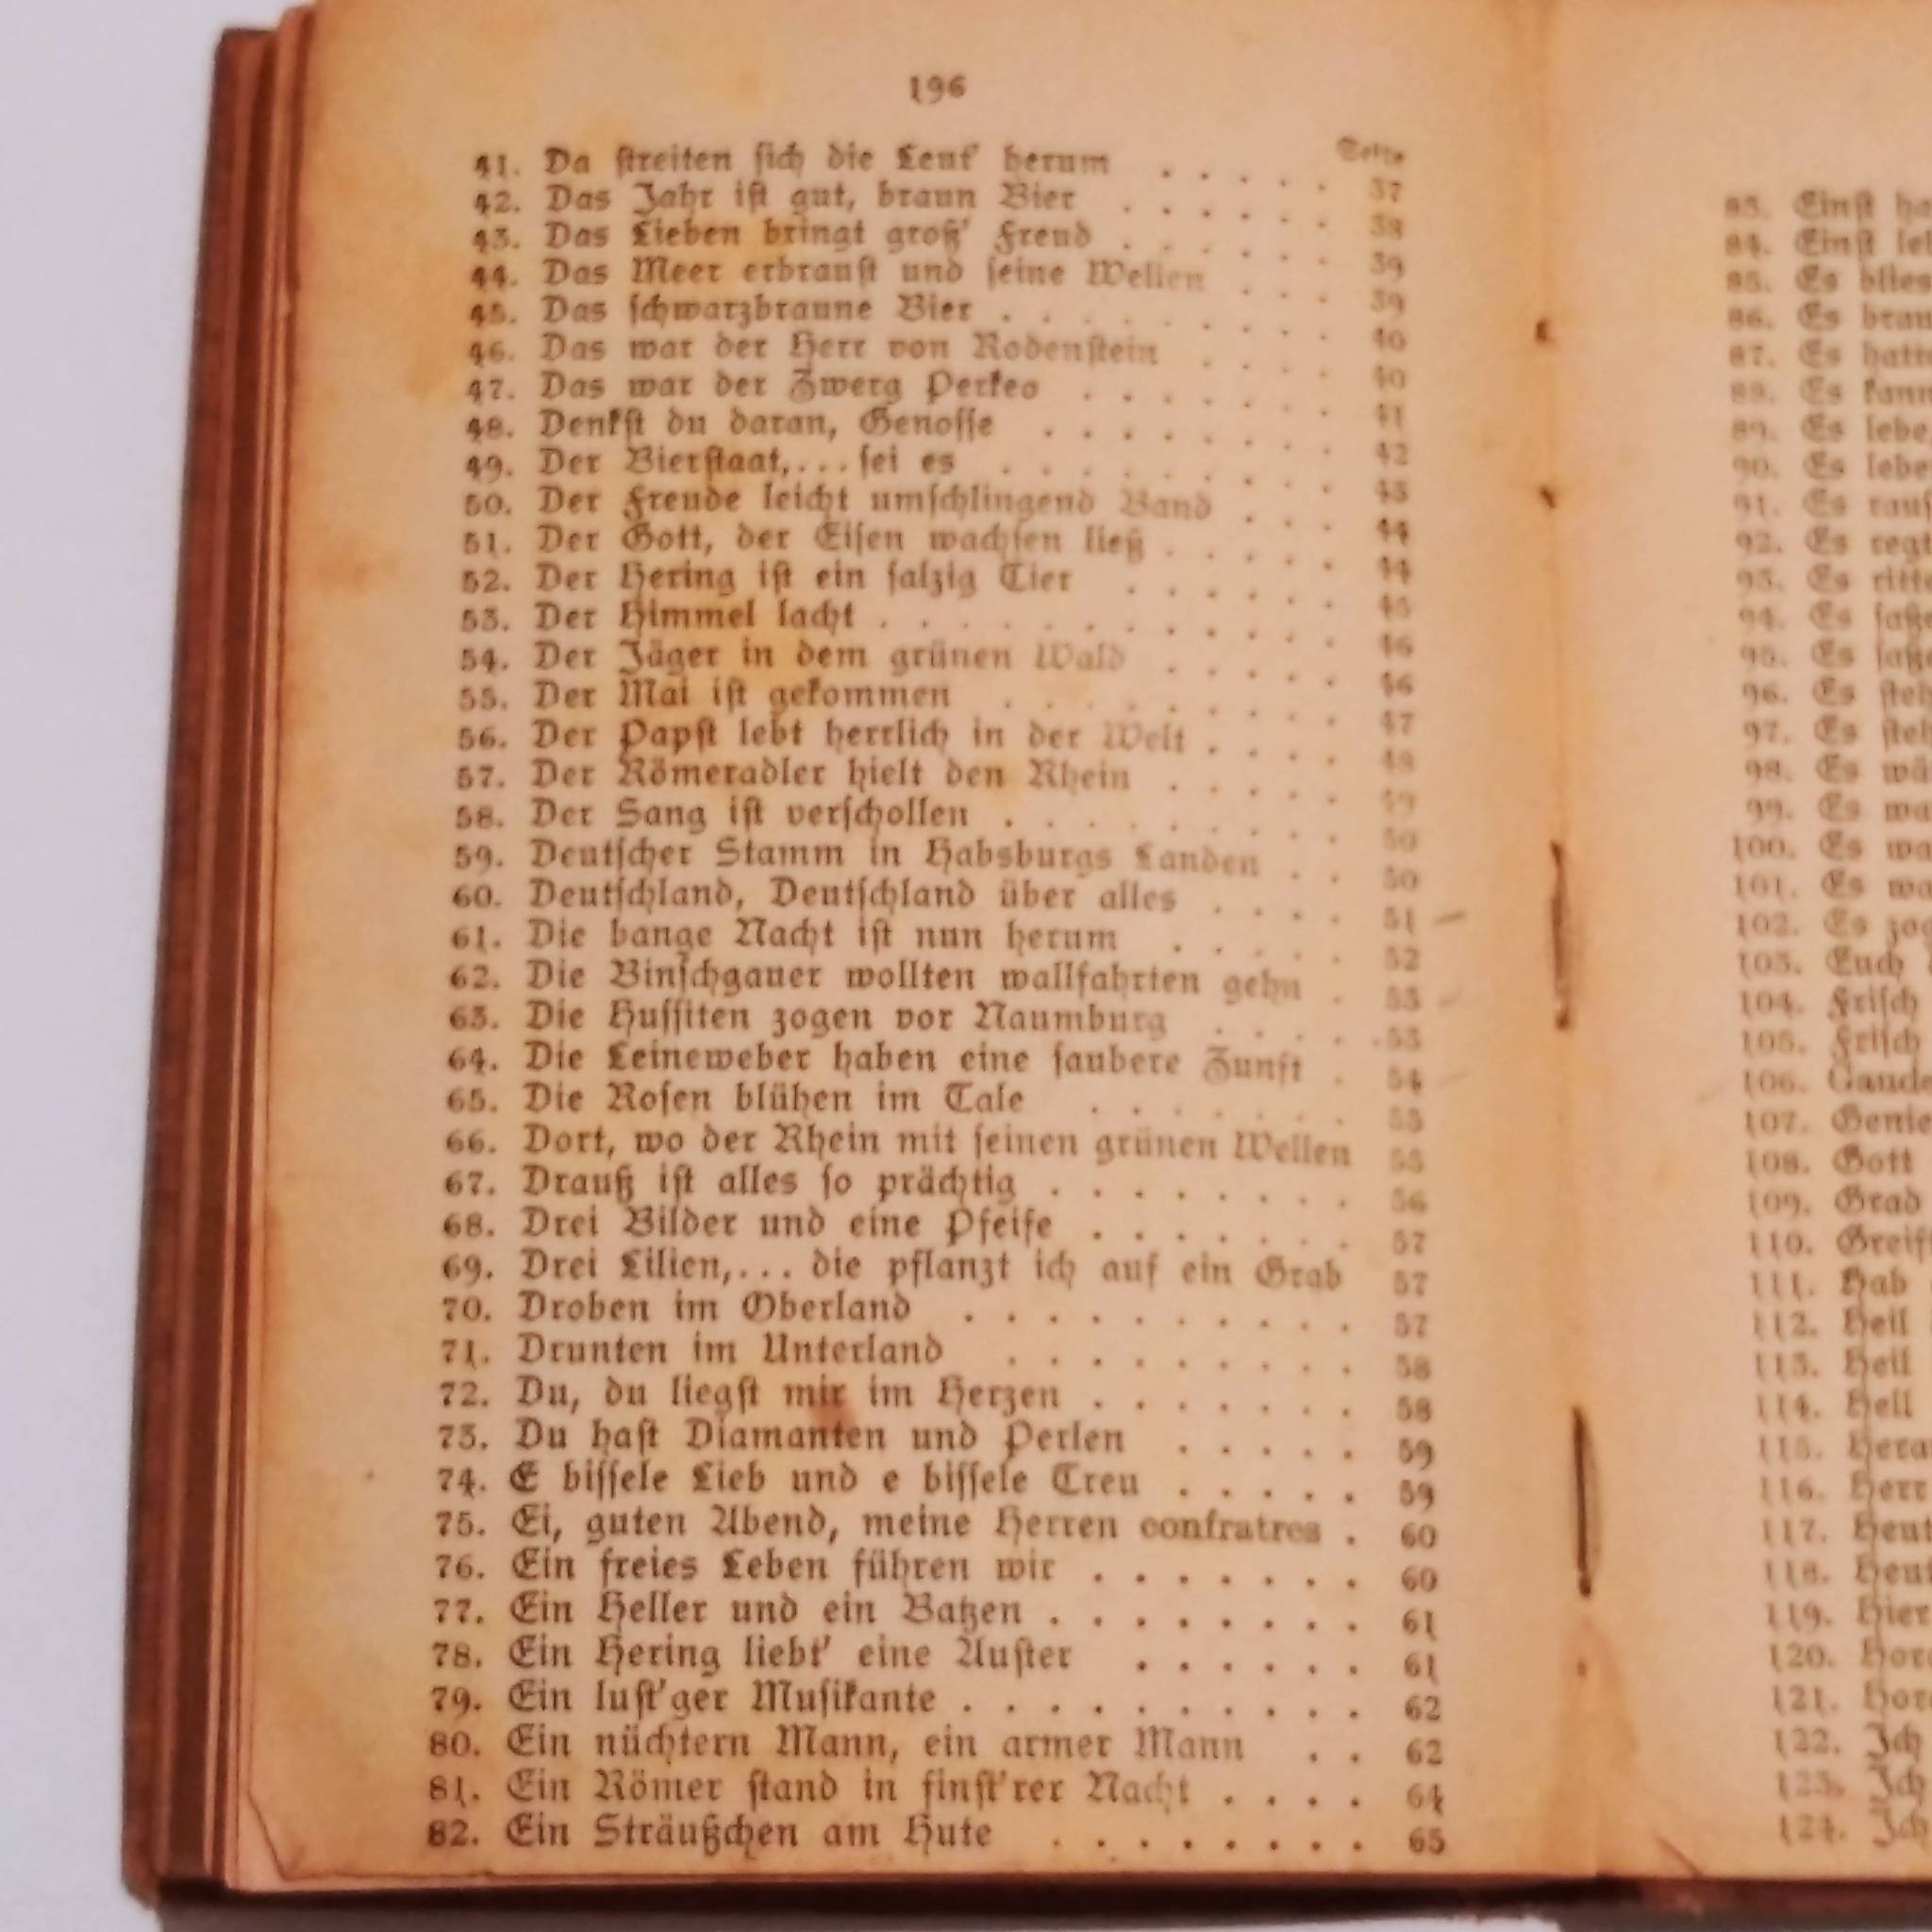 196
Seite
41. Da streiten sich die Leut' herum . . . . . 37
42. Das Jahr ist gut, braun Bier . . . . . . 38
43. Das Lieben bringt groß' Freud . . . . . . 39
44. Das Meer erbraust und seine Wellen . . . 39
45. Das schwarzbraune Bier . . . . . . . . . 40
46. Das war der Herr von Rodenstein . . . . 40
47. Das war der Zwerg Perkeo . . . . . . . 41
48. Denkst du daran, Genosse . . . . . . . . 42
49. Der Bierstaat,... sei es . . . . . . . . . 43
50. Der Freude leicht umschlingend Band . . . 44
51. Der Gott, der Eisen wachsen ließ . . . . . 44
52. Der Hering ist ein salzig Tier . . . . . . 45
53. Der Himmel lacht . . . . . . . . . . . . 46
54. Der Jäger in dem grünen Wald . . . . . 46
55. Der Mai ist gekommen . . . . . . . . . 47
56. Der Papst lebt herrlich in der Welt . . . . 48
57. Der Römeradler hielt den Rhein . . . . . 49
58. Der Sang ist verschollen . . . . . . . . . 50
59. Deutscher Stamm in Habsburgs Landen . . 50
60. Deutschland, Deutschland über alles . . . . 51
61. Die bange Nacht ist nun herum . . . . . 52
62. Die Binschgauer wollten wallfahrten gehn . 53
63. Die Hussiten zogen vor Naumburg . . . . . 53
64. Die Leineweber haben eine saubere Zunft . 54
65. Die Rosen blühen im Tale . . . . . . . 55
66. Dort, wo der Rhein mit seinen grünen Wellen 55
67. Drauß ist alles so prächtig . . . . . . . . 56
68. Drei Bilder und eine Pfeife . . . . . . . 57
69. Drei Lilien,... die pflanzt ich auf ein Grab 57
70. Droben im Oberland . . . . . . . . . . 57
71. Drunten im Unterland . . . . . . . . . 58
72. Du, du liegst mir im Herzen . . . . . . . 58
73. Du hast Diamanten und Perlen . . . . . 59
74. E bissele Lieb und e bissele Treu . . . . . 59
75. Ei, guten Abend, meine Herren confratres . 60
76. Ein freies Leben führen wir . . . . . . . 60
77. Ein Heller und ein Batzen . . . . . . . . 61
78. Ein Hering liebt' eine Auster . . . . . . 61
79. Ein lust'ger Musikante . . . . . . . . . . 62
80. Ein nüchtern Mann, ein armer Mann . . 62
81. Ein Römer stand in finst'rer Nacht . . . . 64
82. Ein Sträußchen am Hute . . . . . . . . 65
83. Einst
84. Einst
85. Es blies
86. Es
87. Es
88. Es
89. Es lebe
90. Es lebe
91. Es
92. Es
93. Es
94. Es
95. Es
96. Es
97. Es
98. Es
99. Es
100. Es
101. Es
102. Es
103. Euch
104. Frisch
105. Frisch
106.
107.
108. Gott
109. Grad
110.
111. Hab
112. Heil
113. Heil
114.
115.
116. Herr
117.
118.
119. Hier
120.
121.
122. Ich
123. Ich
124. Ich